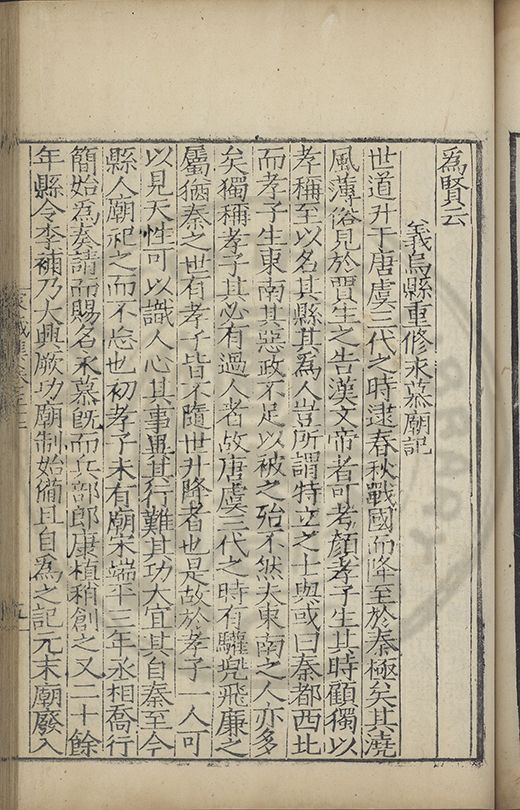 為賢云
義烏縣重修永慕廟記
世道升于唐虞三代之時逮春秋戰國而降至於秦極矣其澆
風薄俗見於賈生之告漢文帝者可考顏孝子生其時顧獨以
孝稱至以名其縣其為人豈所謂特立之士與或曰秦都西北
而孝子生東南其惡政不足以被之殆不然夫東南之人亦多
矣獨稱孝子其必有過人者故唐虞三代之時有驩兜飛廉之
屬猶秦之世有孝子皆不隨世升降者也是故於孝子一人可
以見天性可以識人心其事異其行難其功大宜其自秦至今
縣人廟祀之而不忘也初孝子未有廟宋端平三年丞相喬行
簡始為奏請而賜名永慕旣而兵部郎康植稍創之又二十餘
年縣令李補乃大興厥功廟制始備且自為之記元末廟廢入